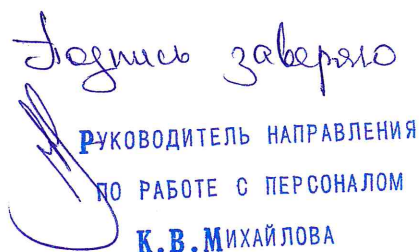 Подпись заверяю
РУКОВОДИТЕЛЬ НАПРАВЛЕНИЯ
ПО РАБОТЕ С ПЕРСОНАЛОМ
К.В.МИХАЙЛОВА